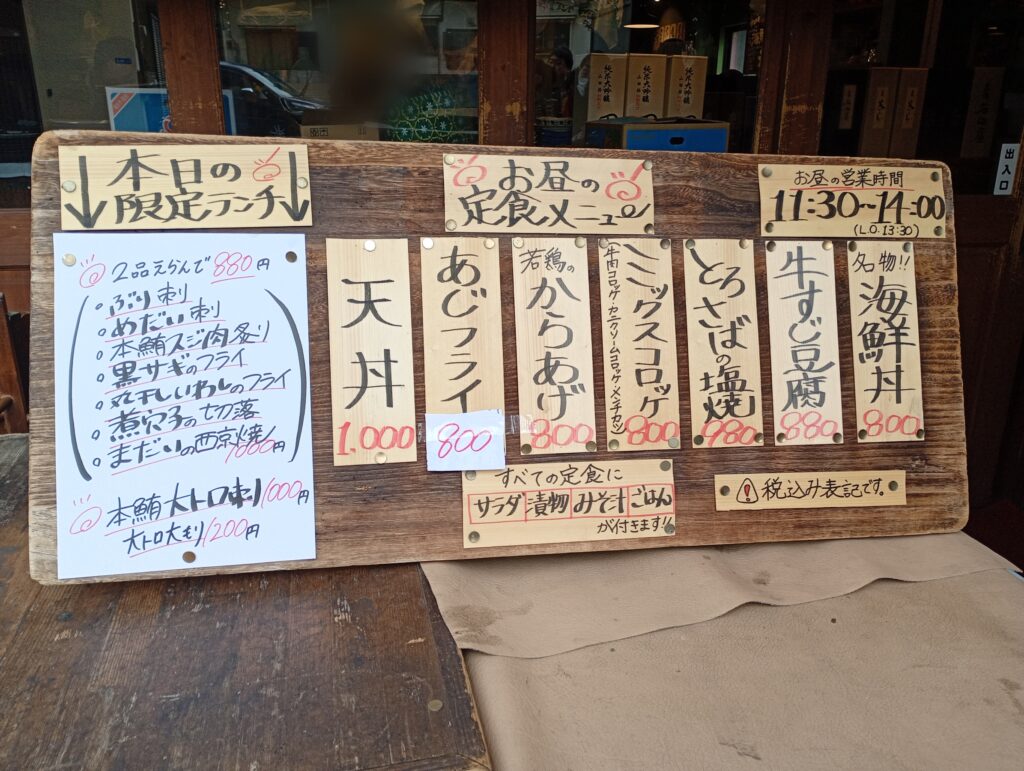 本日の
限定ランチ
お昼の
定食メニュー
お昼の営業時間
11:30~14:00
(L.O.13:30)
2品えらんで880円
・ぶり刺
・めだい刺
・本鮪スジ肉炙り
・黒サギのフライ
・丸干しいわしのフライ
・煮穴子の切落
・まだいの西京焼
本鮪大トロ刺/1000円
大トロ大モリ/1200円
天丼
1.000
あじフライ
800
若鶏の
からあげ
800
ミックスコロッケ
(牛肉コロッケ・カニクリームコロッケ・メンチカツ)
800
とろさばの塩焼
980
牛すじ豆腐
880
名物!!
海鮮丼
800
すべての定食に
サラダ 漬物 みそ汁 ごはん
が付きます!!
税込み表記です。
出入口
純米大吟醸
純米大吟醸
純米大吟醸